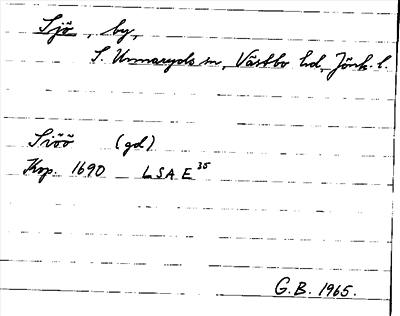 Sjö, by,
S. Unnaryds sn, Västbo hd, Jönk. l.
Siöö (gd)
Kop. 1690 LSA E 35
G.B. 1965.